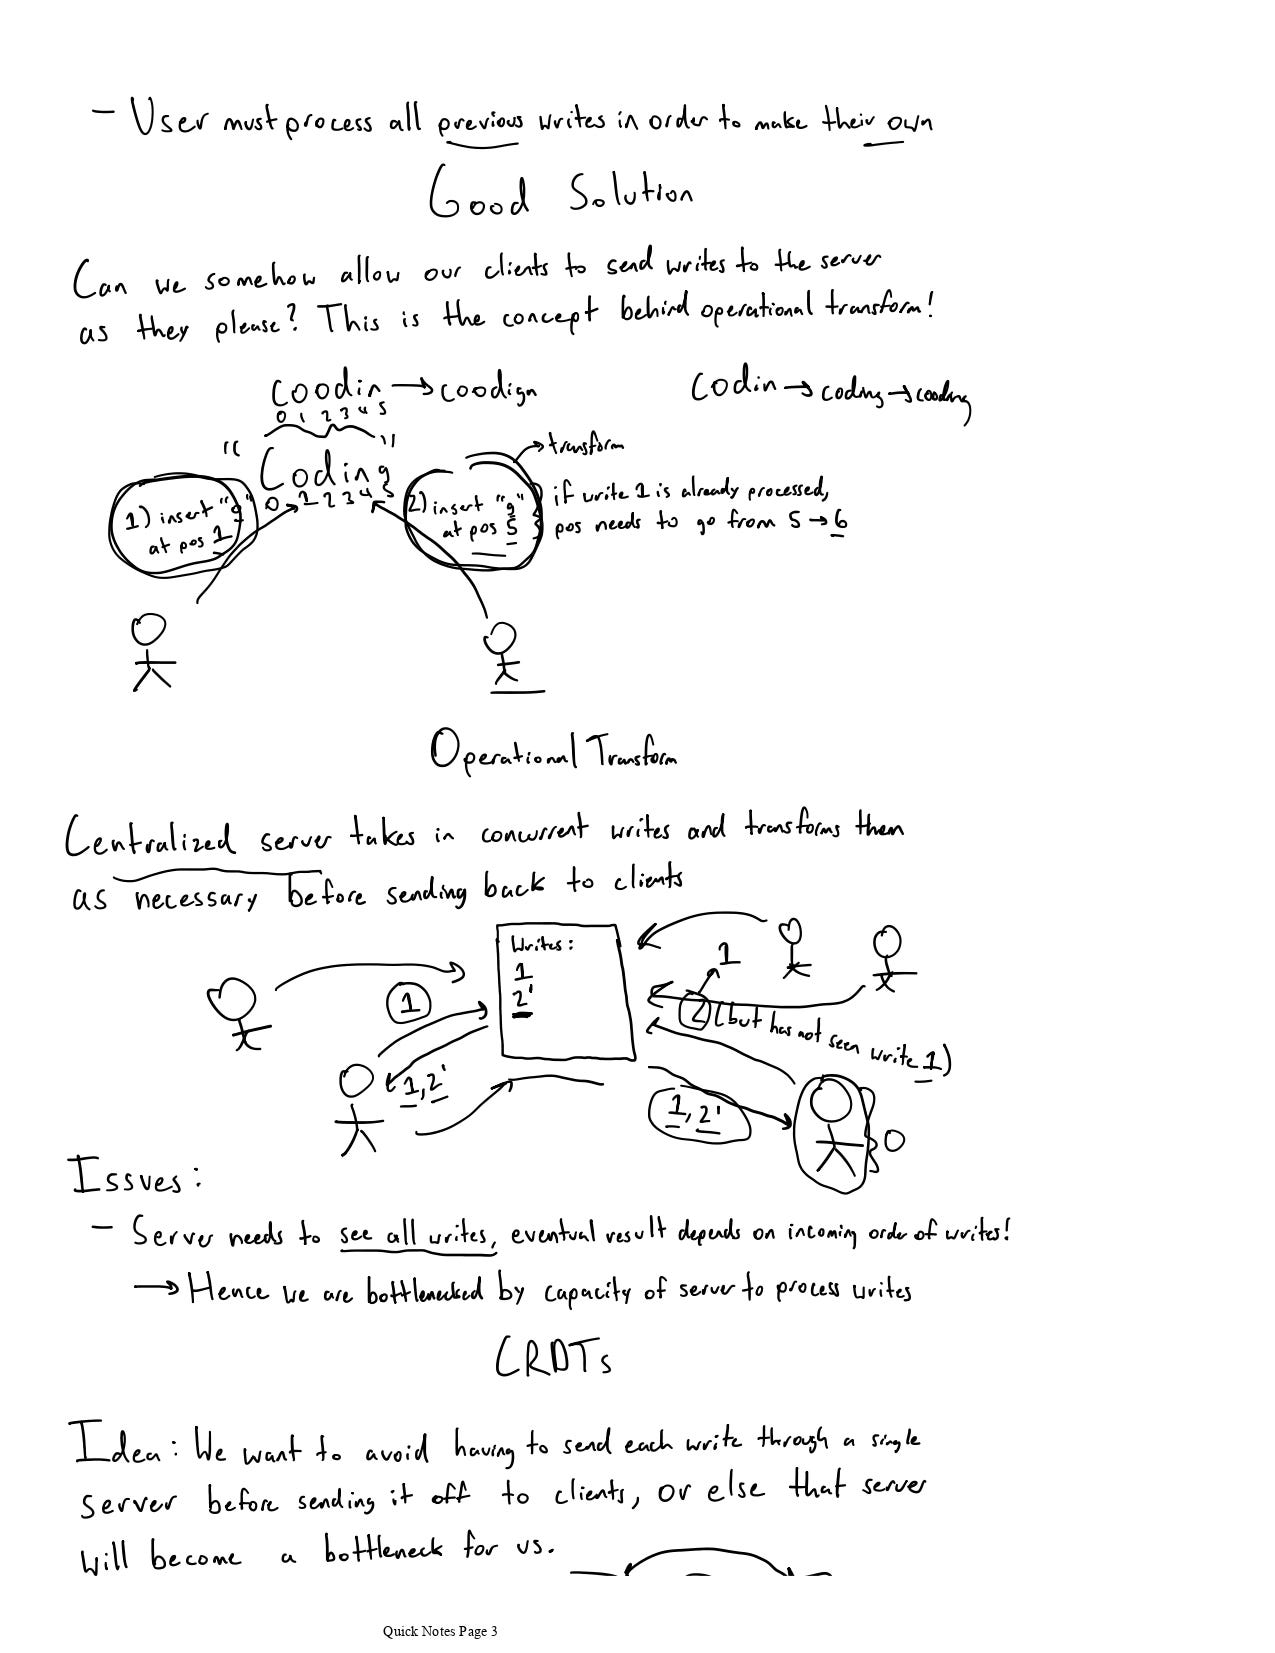 - User must process all previous writes in order to make their own
Good Solution
Can we somehow allow our clients to send writes to the server
as they please? This is the concept behind operational transform!
coodin → coodign
0 1 2 3 4 5
codin → coding → cooding
"Coding"
0 1 2 3 4 5
1) insert "g"
at pos 1
2) insert "g"
at pos 5
→ transform
if write 1 is already processed,
pos needs to go from 5 → 6
Operational Transform
Centralized server takes in concurrent writes and transforms them
as necessary before sending back to clients
Writes:
1
2'
1
1
2 (but has not seen write 1)
1, 2'
1, 2'
Issues:
- Server needs to see all writes, eventual result depends on incoming order of writes!
→ Hence we are bottlenecked by capacity of server to process writes
CRDTs
Idea: We want to avoid having to send each write through a single
server before sending it off to clients, or else that server
will become a bottleneck for us.
Quick Notes Page 3